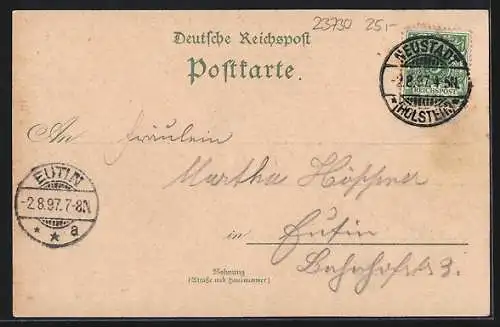 23730 25,-
Deutsche Reichspost
Postkarte.
NEUSTADT
-2.8.97.4-5N
*(HOLSTEIN)*
REICHSPOST
An Fräulein
Martha Höppner
EUTIN
-2.8.97.7-8N
* * a
in Eutin
Bahnhofstr 3.
Wohnung
(Straße und Hausnummer)